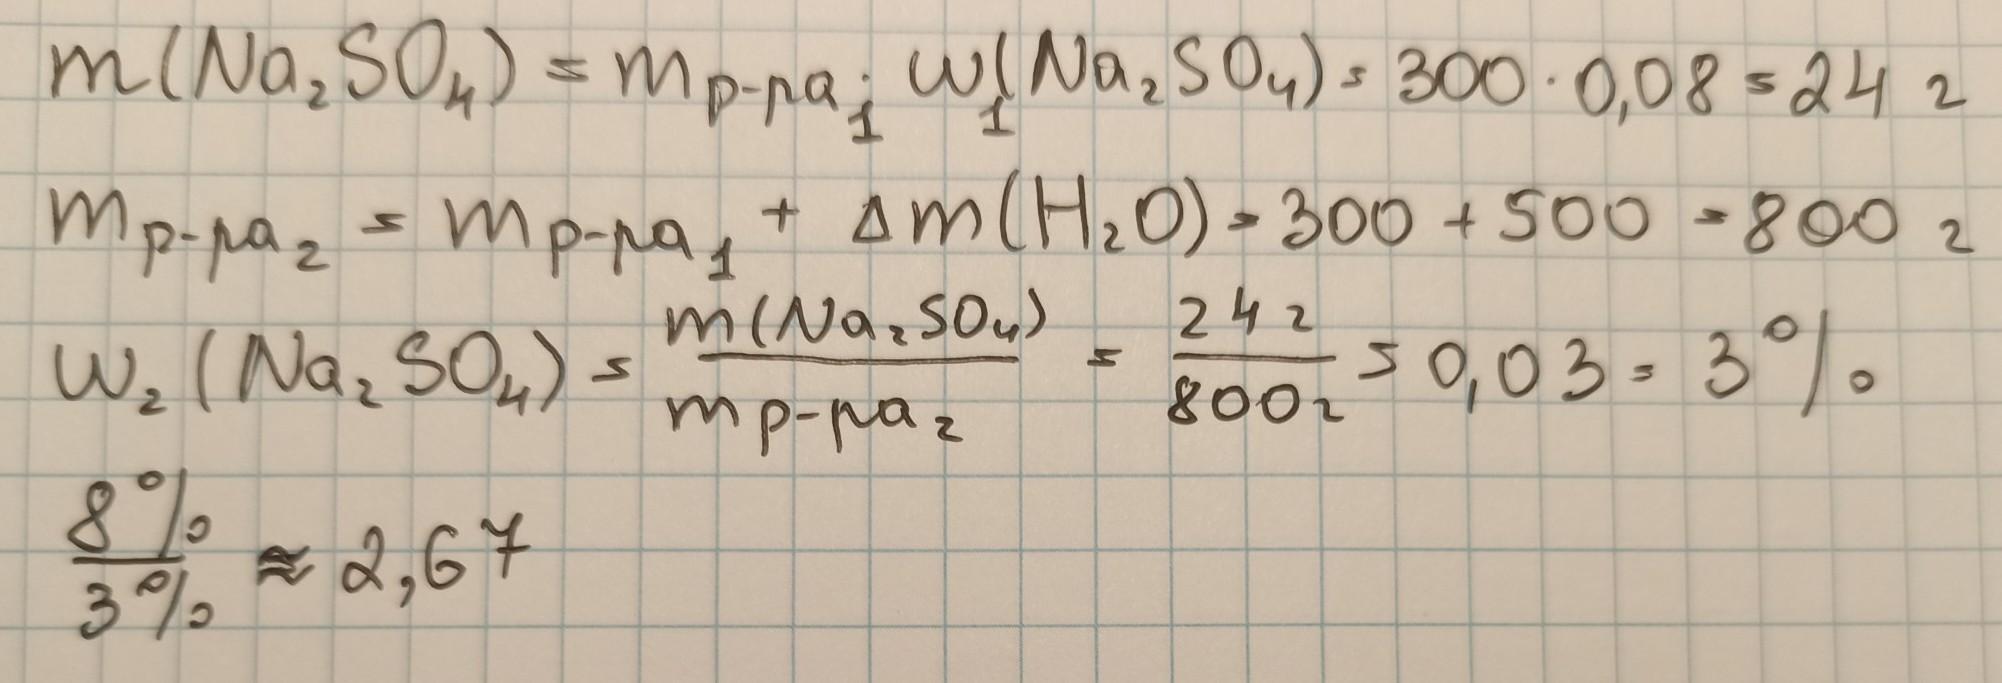 m(Na₂SO₄) = m р-ра₁ · ω₁(Na₂SO₄) = 300 · 0,08 = 24 г
m р-ра₂ = m р-ра₁ + Δm(H₂O) = 300 + 500 = 800 г
ω₂(Na₂SO₄) = m(Na₂SO₄) / m р-ра₂ = 24 г / 800 г = 0,03 = 3%
8% / 3% ≈ 2,67